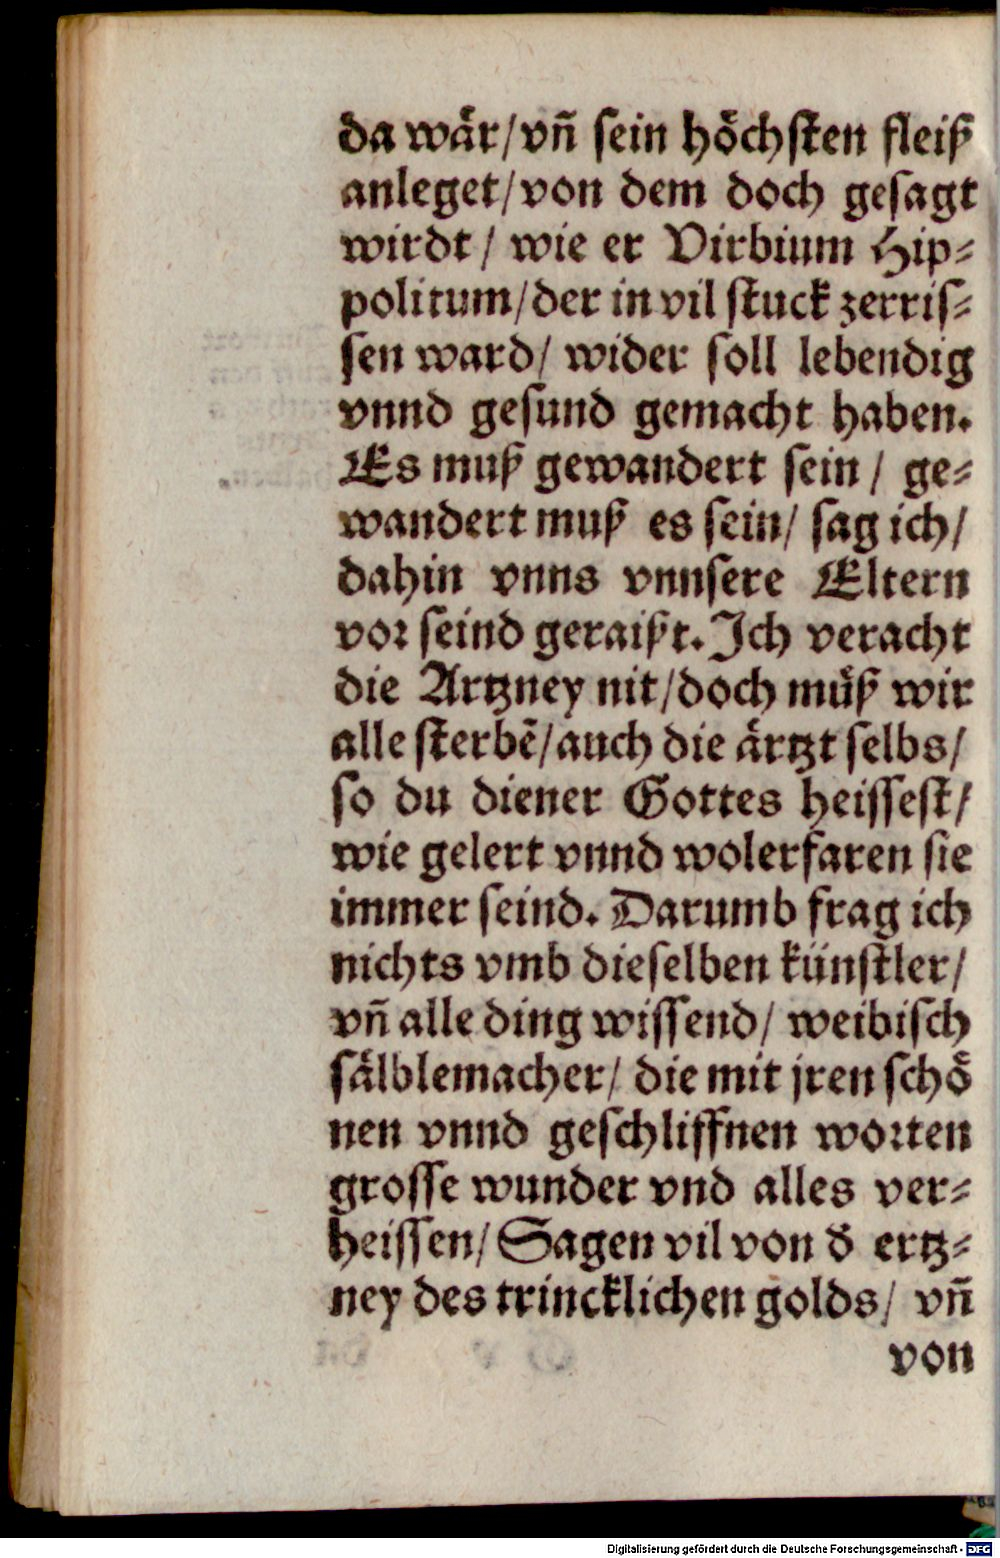 da wår/vñ ſein hőchſten fleiß
anleget/von dem doch geſagt
wirdt / wie er Virbium Hip⸗
politum/der in vil ſtuck zerriſ⸗
ſen ward/ wider ſoll lebendig
vnnd geſund gemacht haben.
Es muß gewandert ſein / ge⸗
wandert muß es ſein/ ſag ich/
dahin vnns vnnſere Eltern
vor ſeind geraißt. Ich veracht
die Artzney nit/doch můß wir
alle ſterbẽ/auch die aͤrtzt ſelbs/
ſo du diener Gottes heiſſeſt/
wie gelert vnnd wolerfaren ſie
immer ſeind. Darumb frag ich
nichts vmb dieſelben künſtler/
vñ alle ding wiſſend/ weibiſch
ſaͤlblemacher/ die mit jren ſchoͤ
nen vnnd geſchliffnen worten
groſſe wunder vnd alles ver⸗
heiſſen/ Sagen vil von d̕ ertz⸗
ney des trincklichen golds/ vñ
von
Digitalisierung gefördert durch die Deutsche Forschungsgemeinschaft - DFG